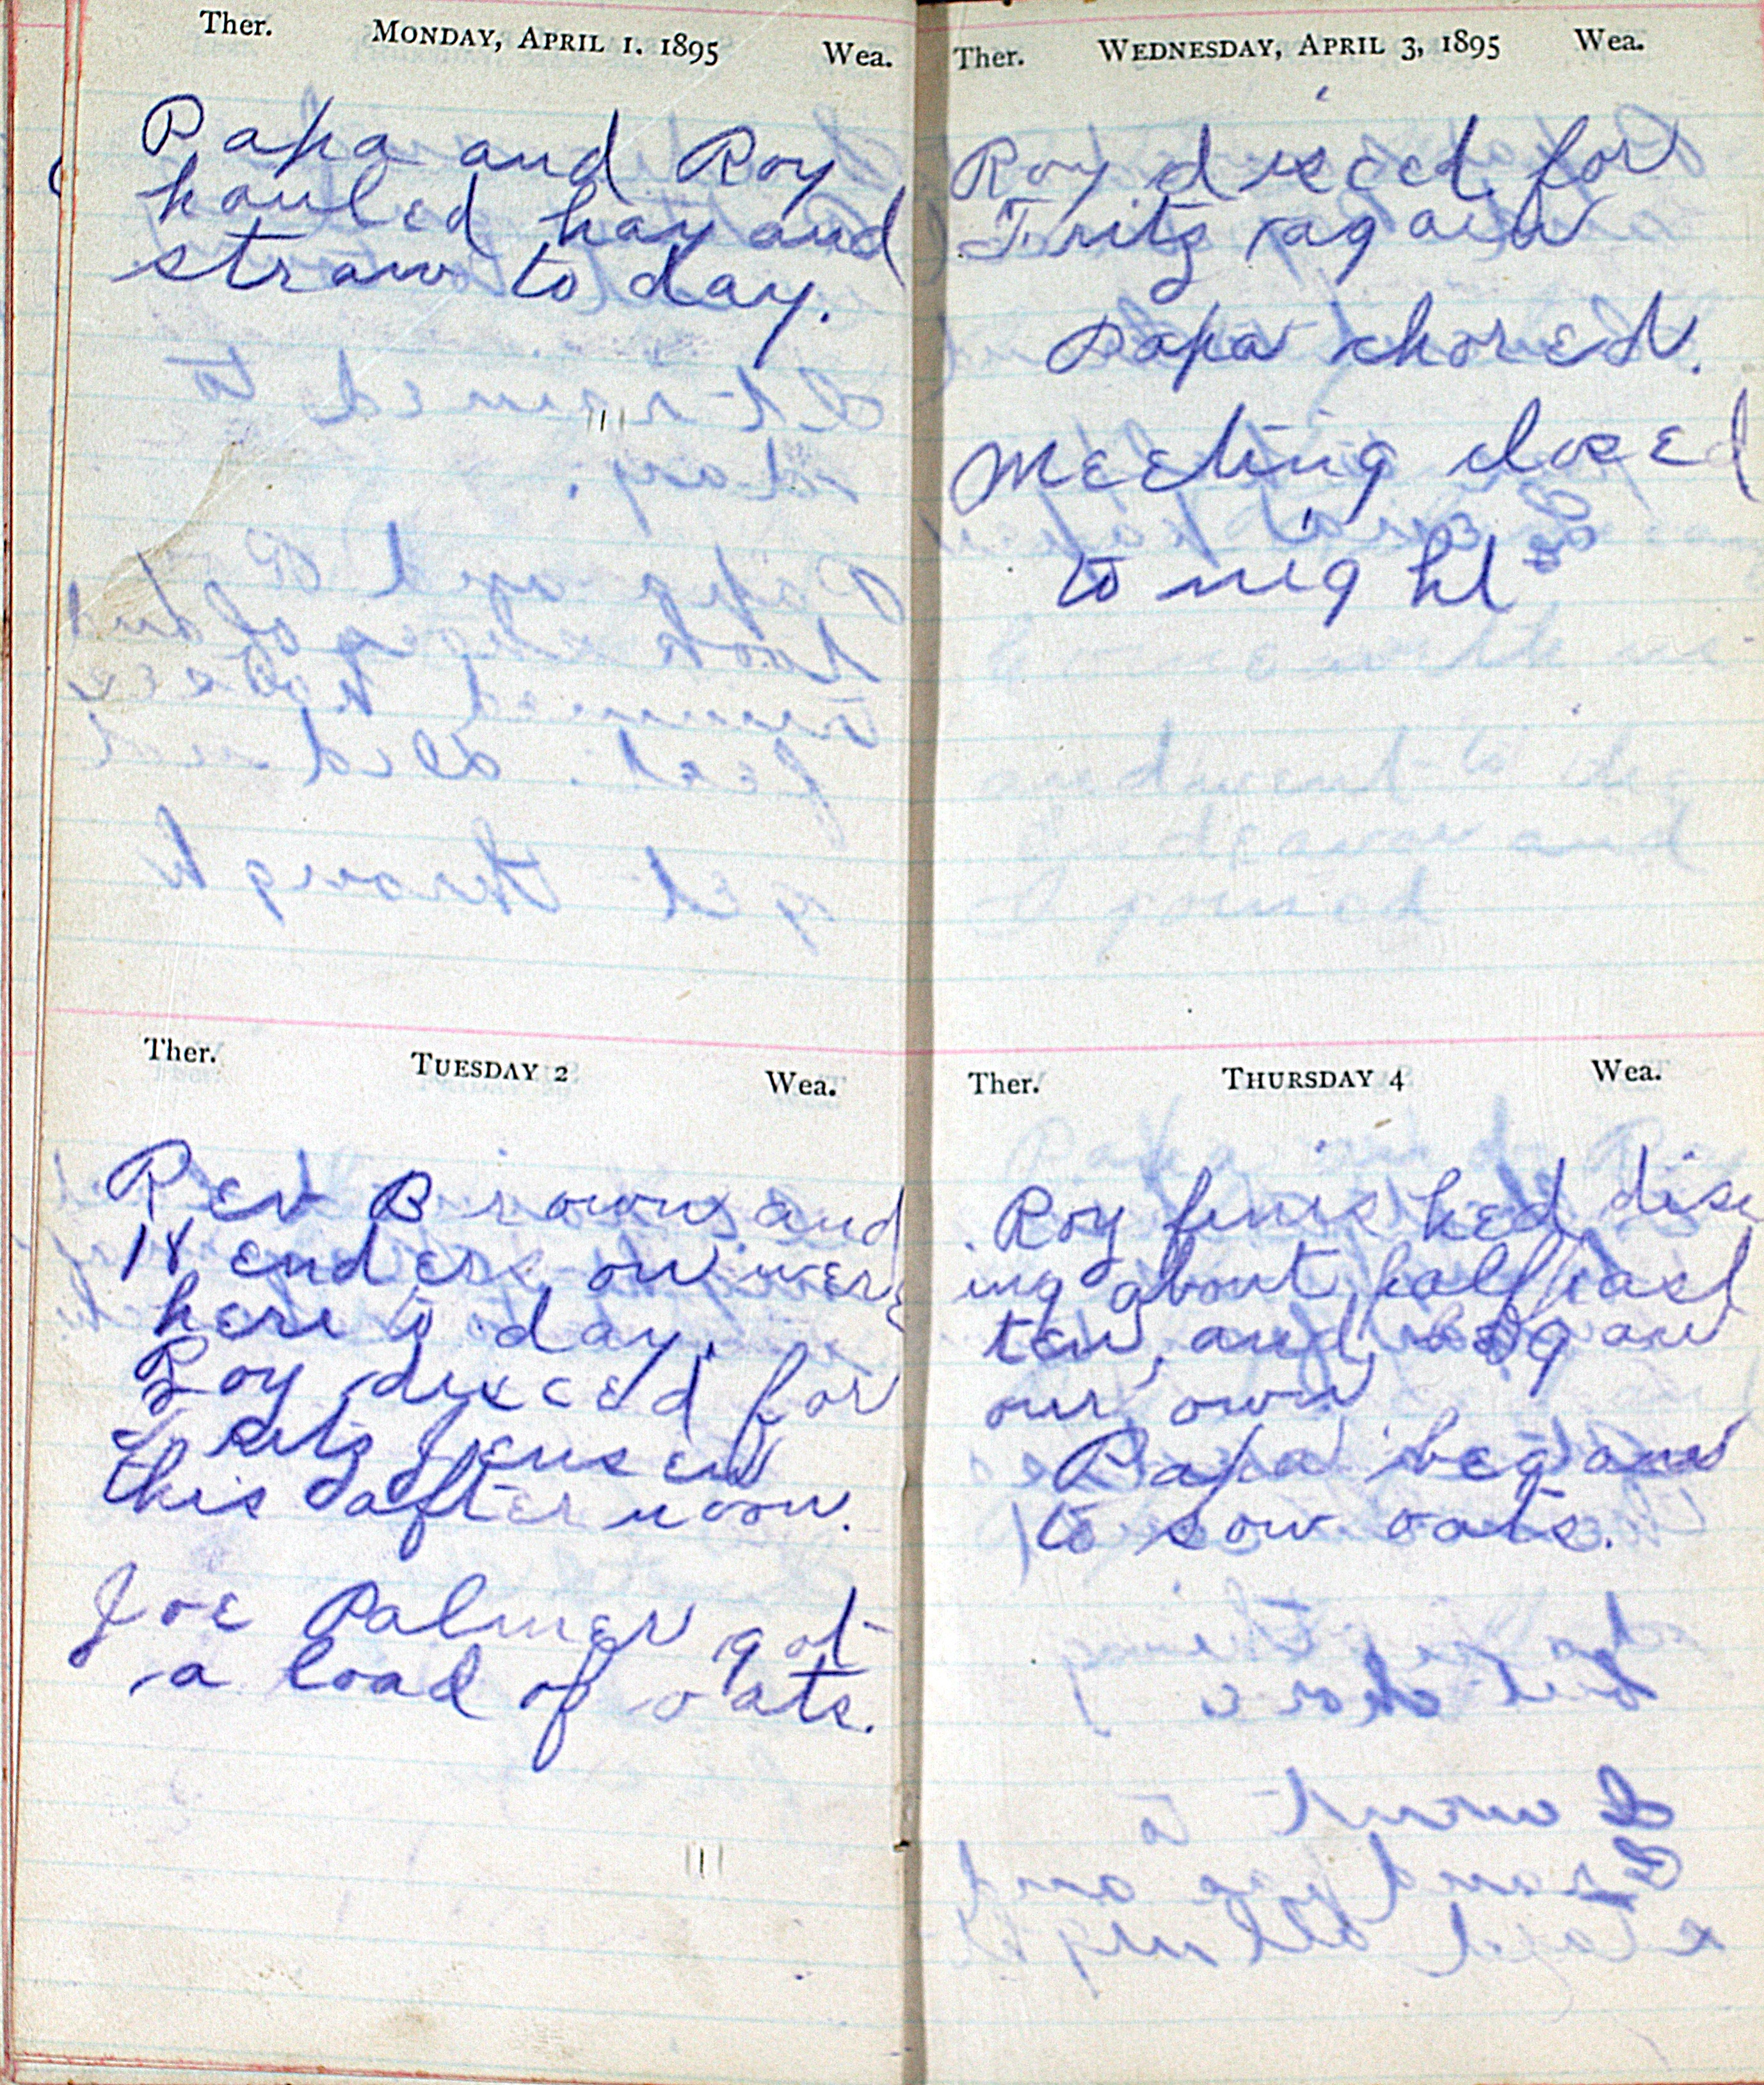 Ther. MONDAY, APRIL 1, 1895 Wea.
Papa and Roy
hauled hay and
straw to day.
Ther. TUESDAY 2 Wea.
Rev Brown and
enderson were
here to day.
Roy disced for
Fritz Jensen
this afternoon.
Joe Palmer got
a load of oats.
Ther. WEDNESDAY, APRIL 3, 1895 Wea.
Roy disced for
Fritz again
Papa chored.
Meeting closed
to night
Ther. THURSDAY 4 Wea.
Roy finished disc
ing about half past
ten, and began
our own
Papa began
to sow oats.